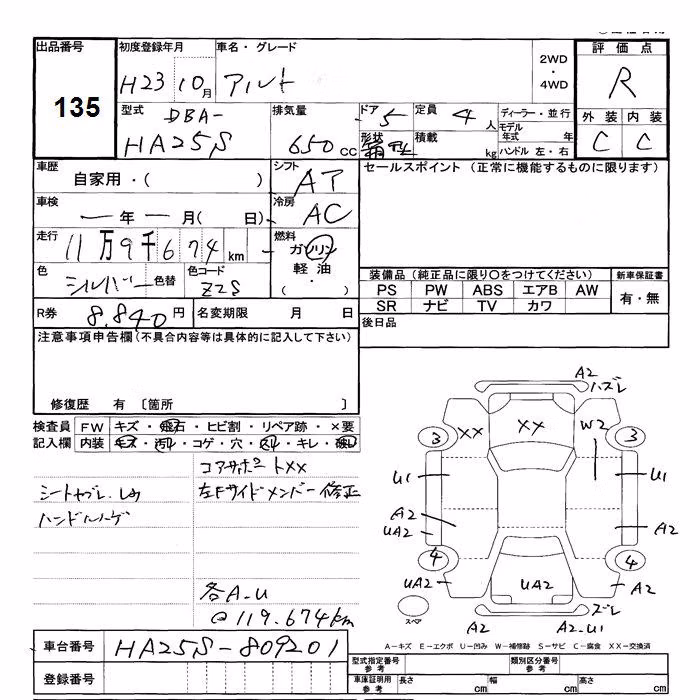 出品番号
135
初度登録年月
H23 10月
車名・グレード
アルト
2WD
・
4WD
評価点
R
外装 内装
C C
型式
DBA-
HA25S
排気量
650 cc
ドア 5
形状
定員 4人
積載 kg
ディーラー・並行
モデル年式 年
ハンドル 左・右
車歴
自家用・( )
シフト
AT
セールスポイント (正常に機能するものに限ります)
車検
ー年ー月( 日)
冷房
AC
走行
11万9千674km
燃料
ガソリン
軽油
・
( )
色
シルバー 色替
色コード
Z2S
装備品 (純正品に限り○をつけてください)
PS PW ABS エアB AW
SR ナビ TV カワ
新車保証書
有・無
R券 8,840円
名変期限 月 日
後日品
注意事項申告欄(不具合内容等は具体的に記入して下さい)
修復歴 有 [箇所 ]
検査員記入欄
FW キズ・飛石・ヒビ割・リペア跡・×要
内装 キズ・汚れ・コゲ・穴・スレ・キレ・破レ
コアサポート XX
左Fサイドメンバー修正
ハンドルハゲ
各A・U
@119.674km
A2 ハズレ
3 XX XX W2 3
U1 U1
A2 A2
UA2
4 4
UA2 UA2 A2
スペア
A2 A2・U1 ズレ
A-キズ E-エクボ U-凹み W-補修跡 S-サビ C-腐食 XX-交換済
車台番号 HA25S-809201
登録番号
型式指定番号 参考
類別区分番号 参考
車庫証明用 参考
長さ cm 幅 cm 高さ cm